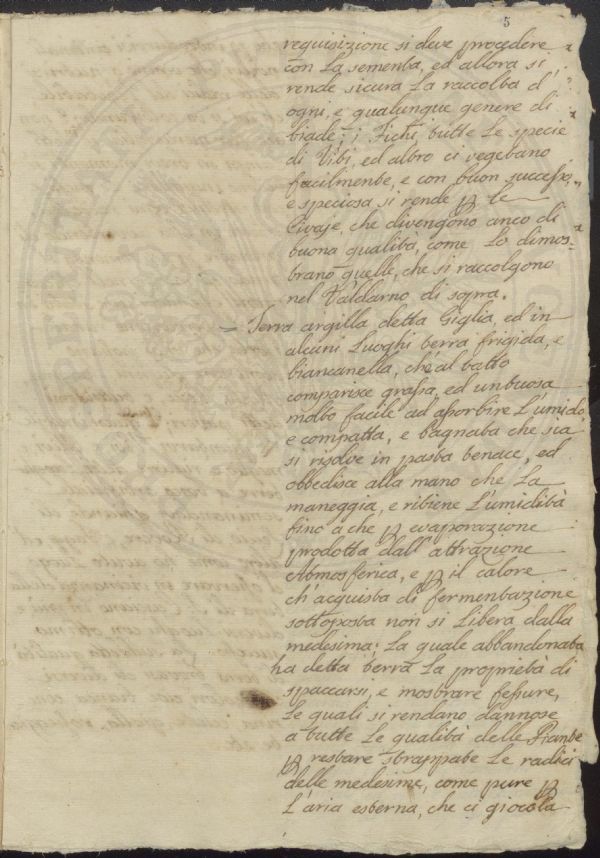 5
requisizione si deve procedere
con La sementa, ed allora si
rende sicura La raccolta d'
ogni, e qualunque genere di
biade, i Fichi, tutte Le specie
di Viti, ed altro ci vegetano
facilmente, e con buon successo,
e speciosa si rende p le
Civaje, che divengono anco di
buona qualità, come Lo dimos=
trano quelle, che si raccolgono
nel Valdarno di sopra.
= Terra argilla detta Giglia, ed in
alcuni Luoghi terra frigida, e
biancanella, che al tatto
comparisce grassa, ed untuosa
molto facile ad assorbire L'umido,
e compatta, e bagnata che sia
si risolve in pasta tenace, ed
obbedisce alla mano che La
maneggia, e ritiene L'umidità
fino a che p evaporazione
prodotta dall'attrazione
Atmosferica, e p il calore
ch'acquista di fermentazione
sottoposta non si Libera dalla
medesima; La quale abbandonata
ha detta terra La proprietà di
spaccarsi, e mostrare fessure,
Le quali si rendano dannose
a tutte Le qualità delle Piante
p restare strappate Le radici
delle medesime, come pure p
L'aria esterna, che ci giocola